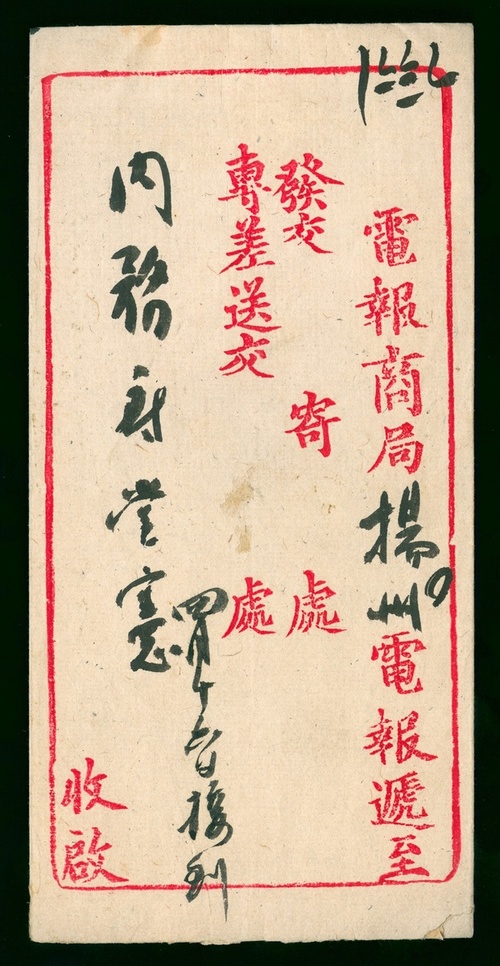 電報商局揚州電報遞至
發交 寄 處
專差送交 處
四月十六日接到
內務府堂憲
收啟